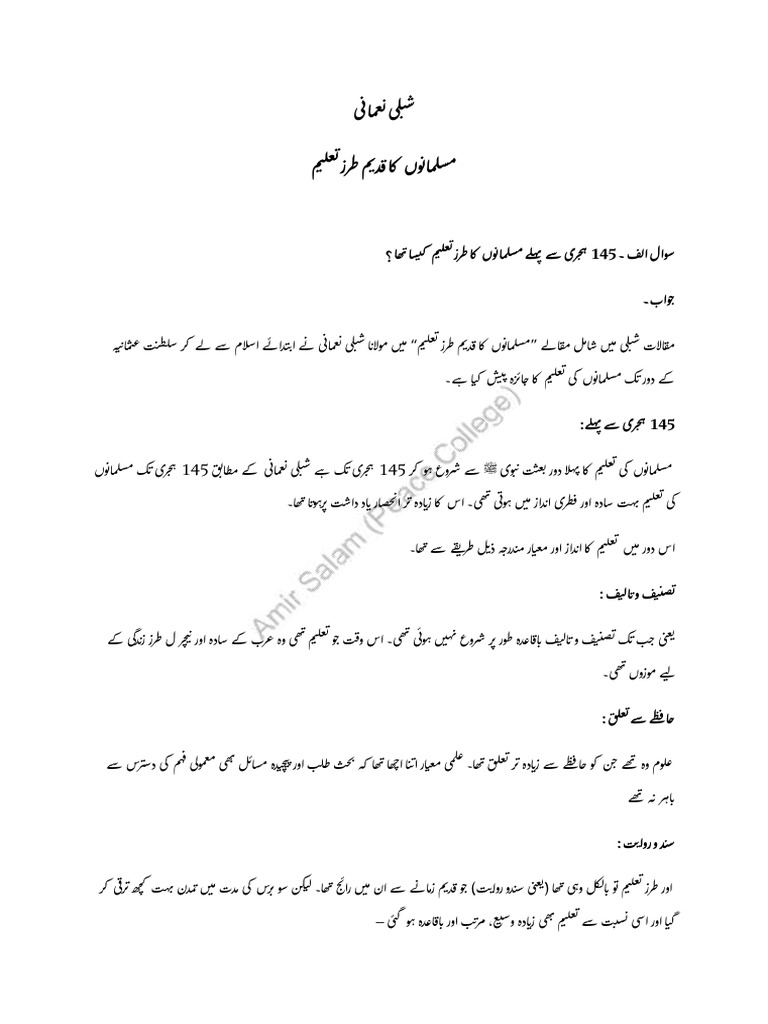 شبلی نعمانی
مسلمانوں کا قدیم طرز تعلیم
سوال الف ۔ 145 ہجری سے پہلے مسلمانوں کا طرز تعلیم کیسا تھا ؟
جواب ۔
مقالات شبلی میں شامل مقالے ”مسلمانوں کا قدیم طرز تعلیم“ میں مولانا شبلی نعمانی نے ابتدائے اسلام سے لے کر سلطنت عثمانیہ
کے دور تک مسلمانوں کی تعلیم کا جائزہ پیش کیا ہے۔
145 ہجری سے پہلے:
مسلمانوں کی تعلیم کا پہلا دور بعثت نبوی ﷺ سے شروع ہو کر 145 ہجری تک ہے شبلی نعمانی کے مطابق 145 ہجری تک مسلمانوں
کی تعلیم بہت سادہ اور فطری انداز میں ہوتی تھی۔ اس کا زیادہ تر انحصار یاد داشت پر ہوتا تھا۔
اس دور میں تعلیم کا انداز اور معیار مندرجہ ذیل طریقے سے تھا۔
تصنیف و تالیف :
یعنی جب تک تصنیف و تالیف باقاعدہ طور پر شروع نہیں ہوئی تھی۔ اس وقت جو تعلیم تھی وہ عرب کے سادہ اور نیچر ل طرز زندگی کے
لیے موزوں تھی۔
حافظے سے تعلق :
علوم وہ تھے جن کو حافظے سے زیادہ تر تعلق تھا۔ علمی معیار اتنا اچھا تھا کہ بحث طلب اور پیچیدہ مسائل بھی معمولی فہم کی دسترس سے
باہر نہ تھے
سند و روایت :
اور طرز تعلیم تو بالکل وہی تھا (یعنی سندو روایت) جو قدیم زمانے سے ان میں رائج تھا۔ لیکن سو برس کی مدت میں تمدن بہت کچھ ترقی کر
گیا اور اسی نسبت سے تعلیم بھی زیادہ وسیع، مرتب اور باقاعدہ ہو گئی –
Amir Salam (Peace College)